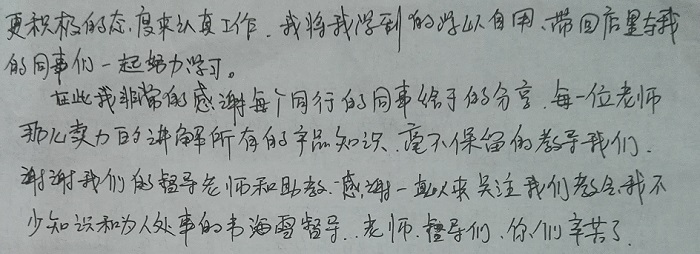 更积极的态度来认真工作．我将我学到的学以自用、带回店里与我
的同事们一起努力学习。
在此我非常的感谢每个同行的同事给予的分享．每一位老师
那么卖力的讲解所有的产品知识．毫不保留的教导我们．
谢谢我们的督导老师和助教．感谢一直以来关注我们教会我不
少知识和为人处事的韦海雪督导..老师．督导们、你们辛苦了．